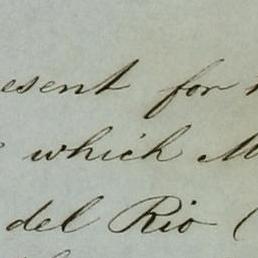 esent for
which M
del Rio (